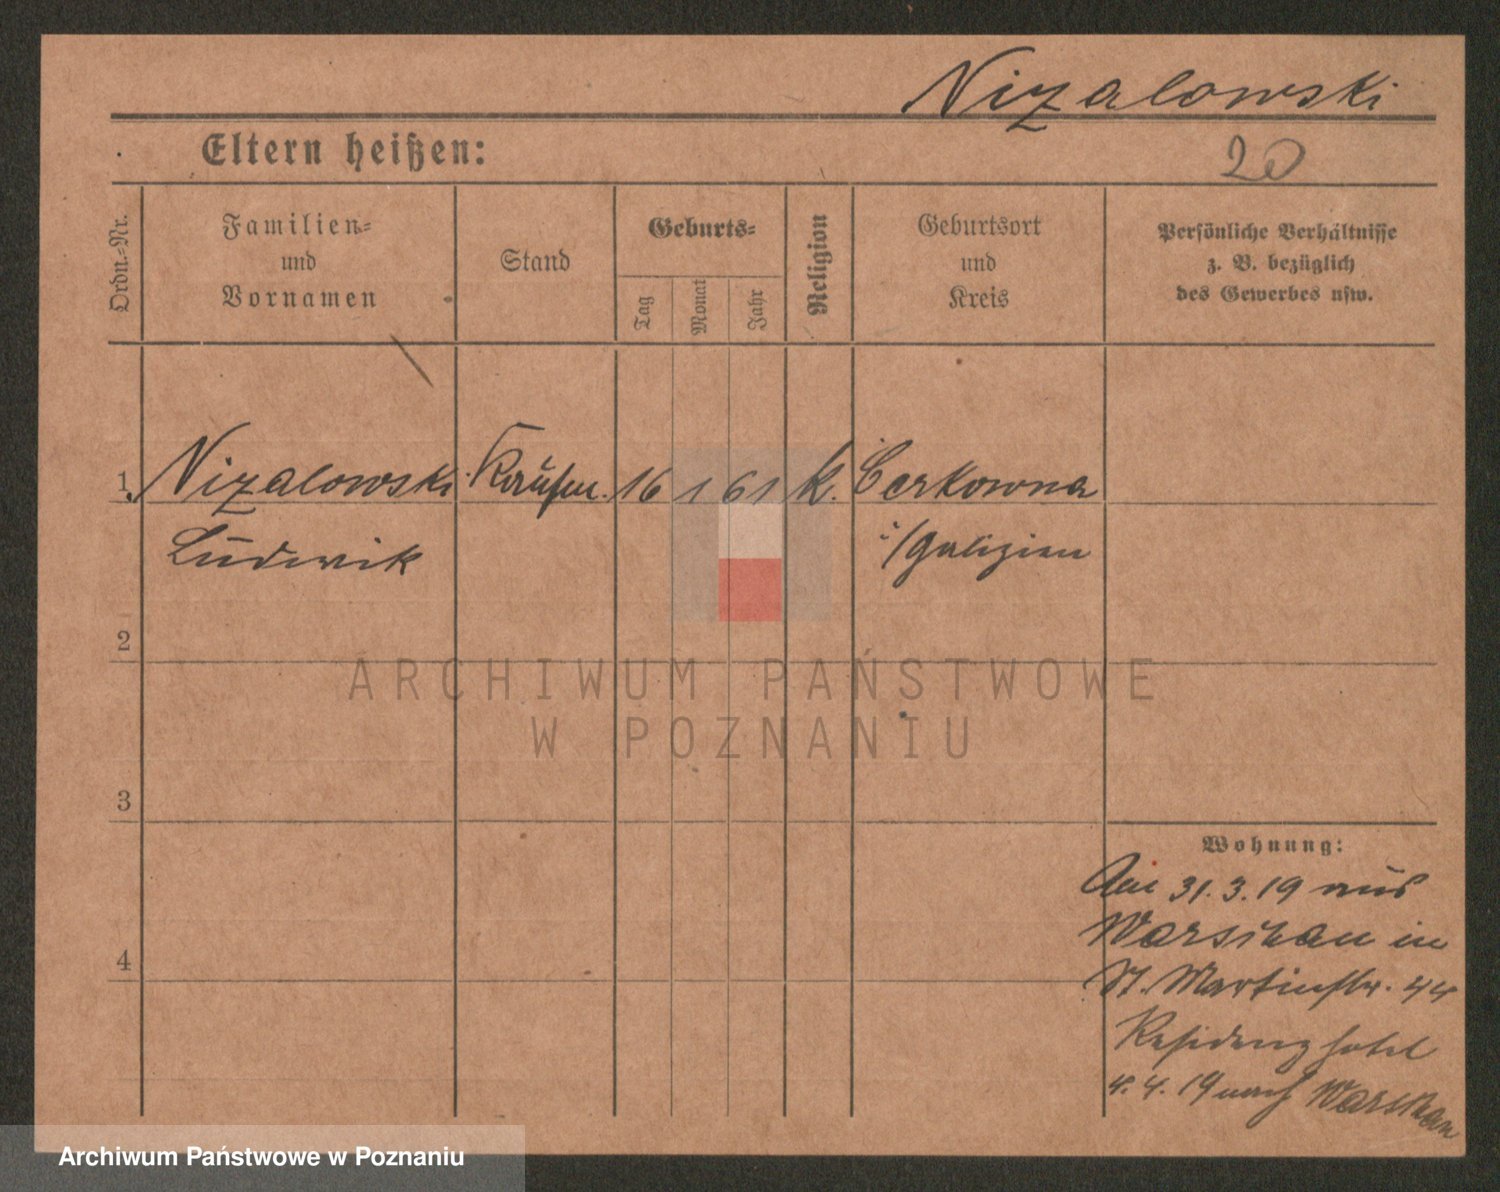 Nizalowski
Eltern heißen:
20
Ordn.-Nr.
Familien-
und
Vornamen
Stand
Geburts-
Tag
Monat
Jahr
Religion
Geburtsort
und
Kreis
Persönliche Verhältnisse
z. B. bezüglich
des Gewerbes usw.
1 Nizalowski Kaufm. 16 1 61 k. Cerkowna
Ludwik i/Galizien
2
ARCHIWUM PAŃSTWOWE
W POZNANIU
3
Wohnung:
Am 31.3.19 aus
Warschau in
4
St. Martinstr. 44
Residenzhotel
4.4.19 nach Warschau
Archiwum Państwowe w Poznaniu